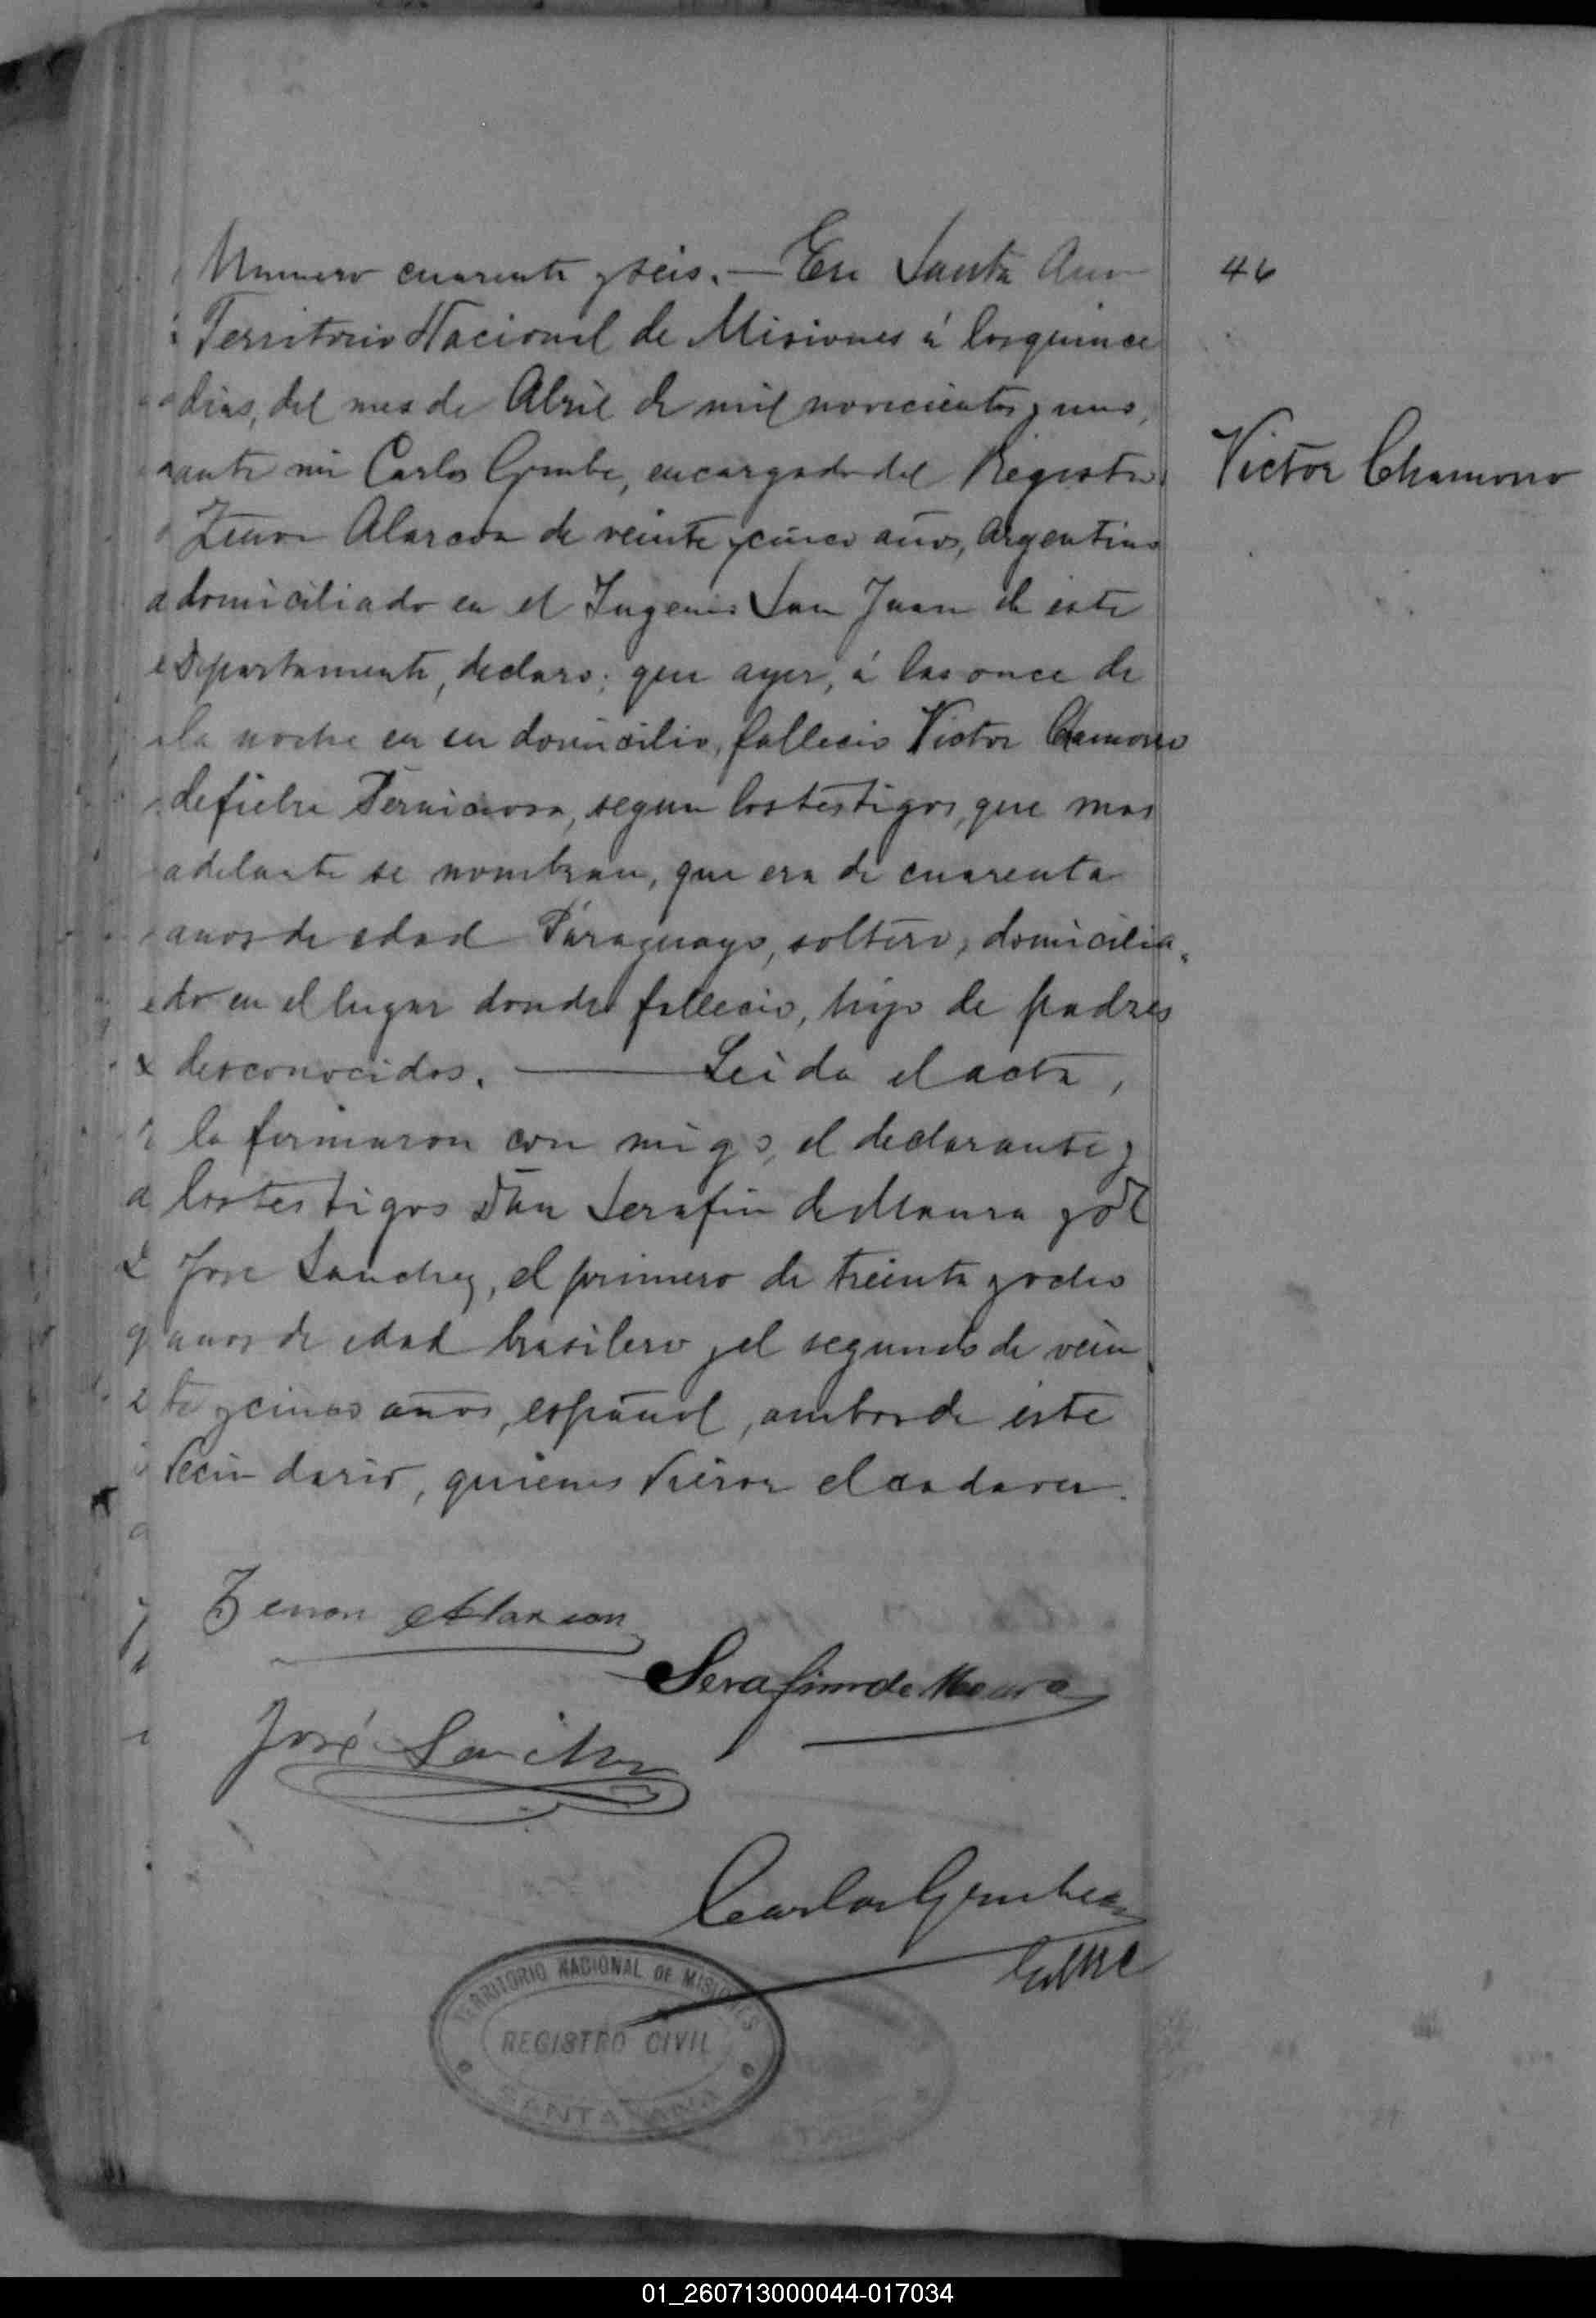 Numero cuarenta y seis. — En Santa Ana
46
Territorio Nacional de Misiones á los quince
dias, del mes de Abril de mil novecientos y uno,
ante mi Carlos Grube, encargado del Registro
Victor Chamorro
Zenon Alarcon de veinte y cinco años, argentino
domiciliado en el Ingenio San Juan de este
Departamento, declaro; que ayer, á las once de
la noche en su domicilio, fallecio Victor Chamorro
de fiebre Perniciosa, segun los testigos, que mas
adelante se nombran, que era de cuarenta
anos de edad Paraguayo, soltero, domicilia
do en el lugar donde fallecio, hijo de padres
desconocidos. — Leida el acta,
la firmaron con migo, el declarante y
los testigos Dan Serafin de Moura y Dn
Jose Sanchez, el primero de treinta y ocho
anos de edad brasilero y el segundo de vein
te y cinco años, español, ambos de este
Vecindario, quienes vieron el cadaver.
Zenon Alarcon
Serafim de Moura
José Sanchez
Carlos Grube
TERRITORIO NACIONAL DE MISIONES
REGISTRO CIVIL
SANTA ANA
01_260713000044-017034